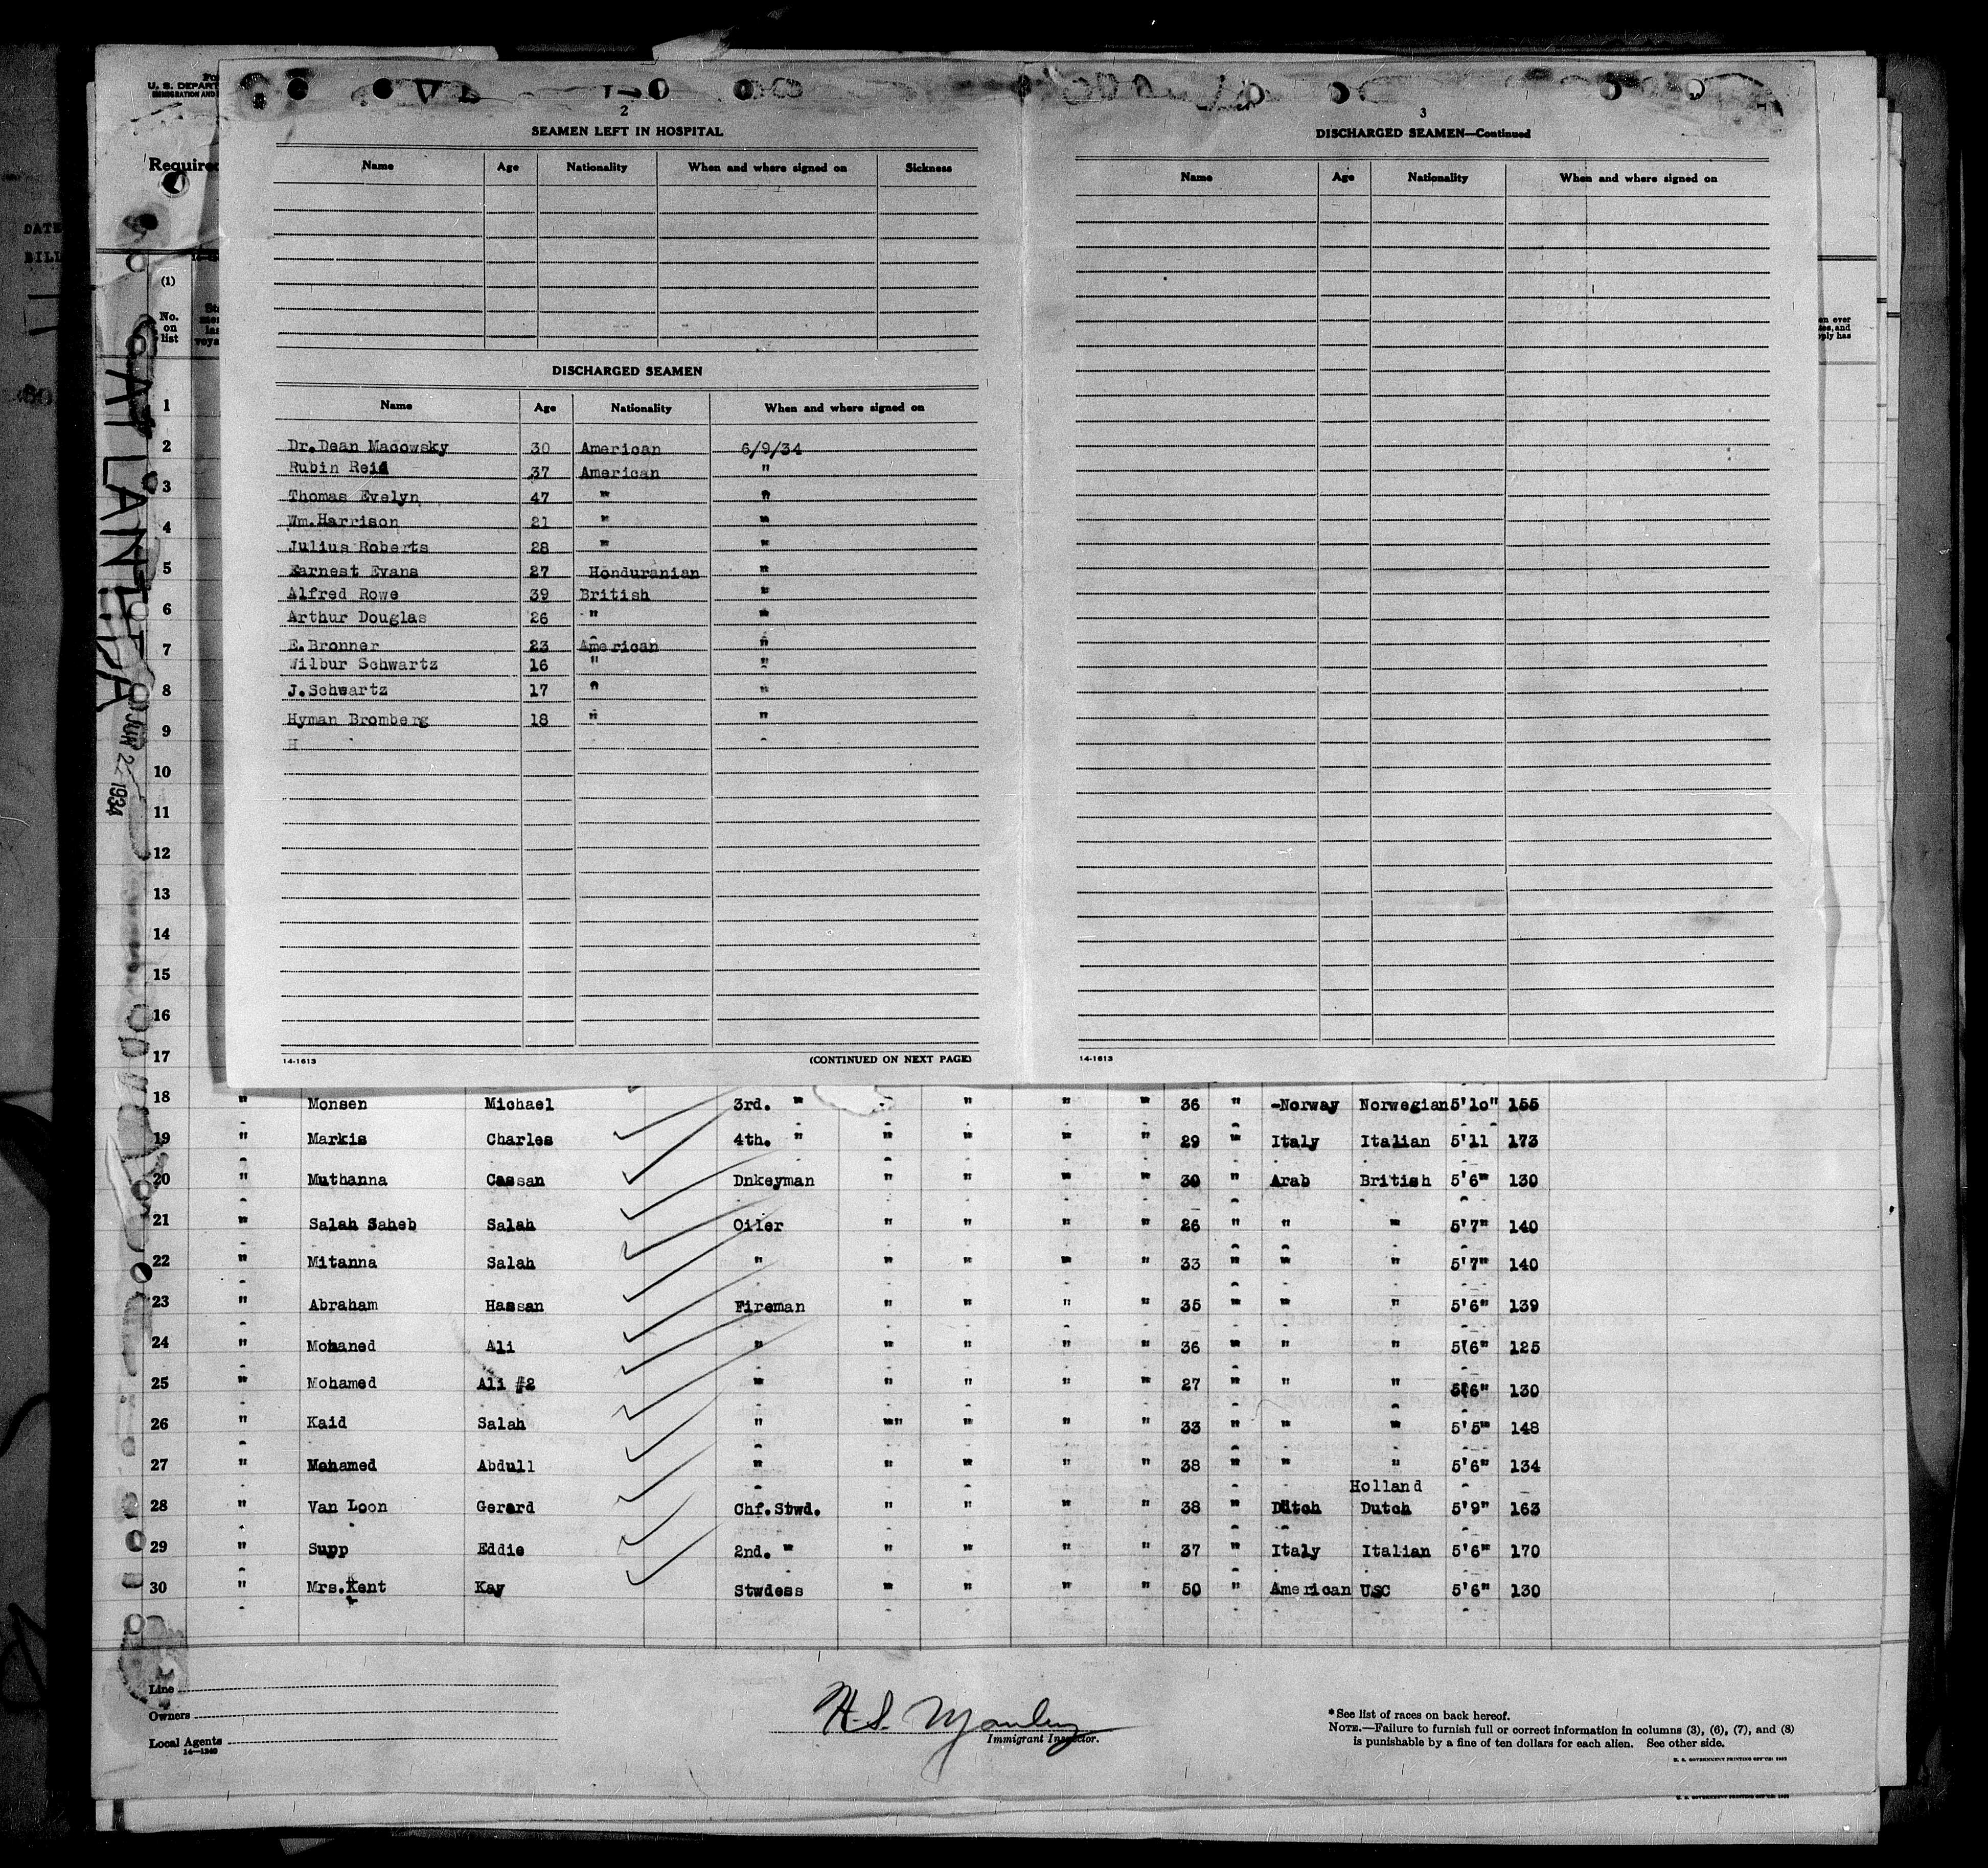 U. S. DEPART
IMMIGRATION AND
Required
DATE
BILL
(1)
No.
on
list
ATLANTIDA
JUN 2 1934
2
SEAMEN LEFT IN HOSPITAL
Name Age Nationality When and where signed on Sickness
DISCHARGED SEAMEN
Name Age Nationality When and where signed on
Dr.Dean Macowsky 30 American 6/9/34
Rubin Reid 37 American "
Thomas Evelyn 47 " "
Wm.Harrison 21 " "
Julius Roberts 28 " "
Earnest Evans 27 Honduranian "
Alfred Rowe 39 British "
Arthur Douglas 26 " "
E.Bronner 23 American "
Wilbur Schwartz 16 " "
J.Schwartz 17 " "
Hyman Bromberg 18 " "
H
14-1613 (CONTINUED ON NEXT PAGE)
3
DISCHARGED SEAMEN—Continued
Name Age Nationality When and where signed on
14-1613
1
2
3
4
5
6
7
8
9
10
11
12
13
14
15
16
17
18 " Monsen Michael 3rd. " " " " " 36 " -Norway Norwegian 5'10" 155
19 " Markis Charles 4th. " " " " " 29 " Italy Italian 5'11 173
20 " Muthanna Cassan Dnkeyman " " " " 30 " Arab British 5'6" 130
21 " Salah Saheb Salah Oiler " " " " 26 " " " 5'7" 140
22 " Mitanna Salah " " " " " 33 " " " 5'7" 140
23 " Abraham Hassan Fireman " " " " 35 " " " 5'6" 139
24 " Mohaned Ali " " " " " 36 " " " 5(6" 125
25 " Mohamed Ali #2 " " " " " 27 " " " 5'6" 130
26 " Kaid Salah " "" " " " 33 " " " 5'5" 148
27 " Mohamed Abdull " " " " " 38 " " " 5'6" 134
Holland
28 " Van Loon Gerard Chf.Stwd. " " " " 38 " Dutch Dutch 5'9" 163
29 " Supp Eddie 2nd. " " " " " 37 " Italy Italian 5'6" 170
30 " Mrs.Kent Kay Stwdess " " " " 50 " American USC 5'6" 130
Line
Owners
Local Agents
14—1240
H.S. Manley
Immigrant Inspector.
*See list of races on back hereof.
NOTE.—Failure to furnish full or correct information in columns (3), (6), (7), and (8)
is punishable by a fine of ten dollars for each alien. See other side.